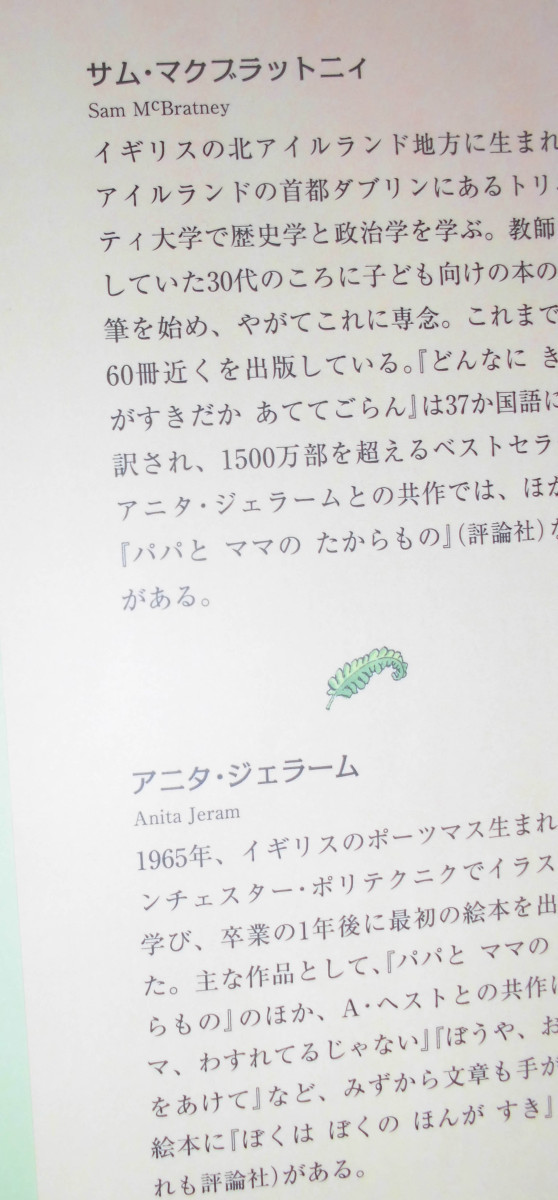 サム・マクブラットニィ
Sam McBratney
イギリスの北アイルランド地方に生まれ
アイルランドの首都ダブリンにあるトリ
ティ大学で歴史学と政治学を学ぶ。教師
していた30代のころに子ども向けの本の
筆を始め、やがてこれに専念。これまで
60冊近くを出版している。『どんなに き
がすきだか あててごらん』は37か国語に
訳され、1500万部を超えるベストセラ
アニタ・ジェラームとの共作では、ほか
『パパと ママの たからもの』(評論社)な
がある。
アニタ・ジェラーム
Anita Jeram
1965年、イギリスのポーツマス生まれ
ンチェスター・ポリテクニクでイラス
学び、卒業の1年後に最初の絵本を出
た。主な作品として、『パパと ママの
らもの』のほか、A・ヘストとの共作に
マ、わすれてるじゃない』『ぼうや、お
をあけて』など、みずから文章も手が
絵本に『ぼくは ぼくの ほんが すき』
れも評論社)がある。